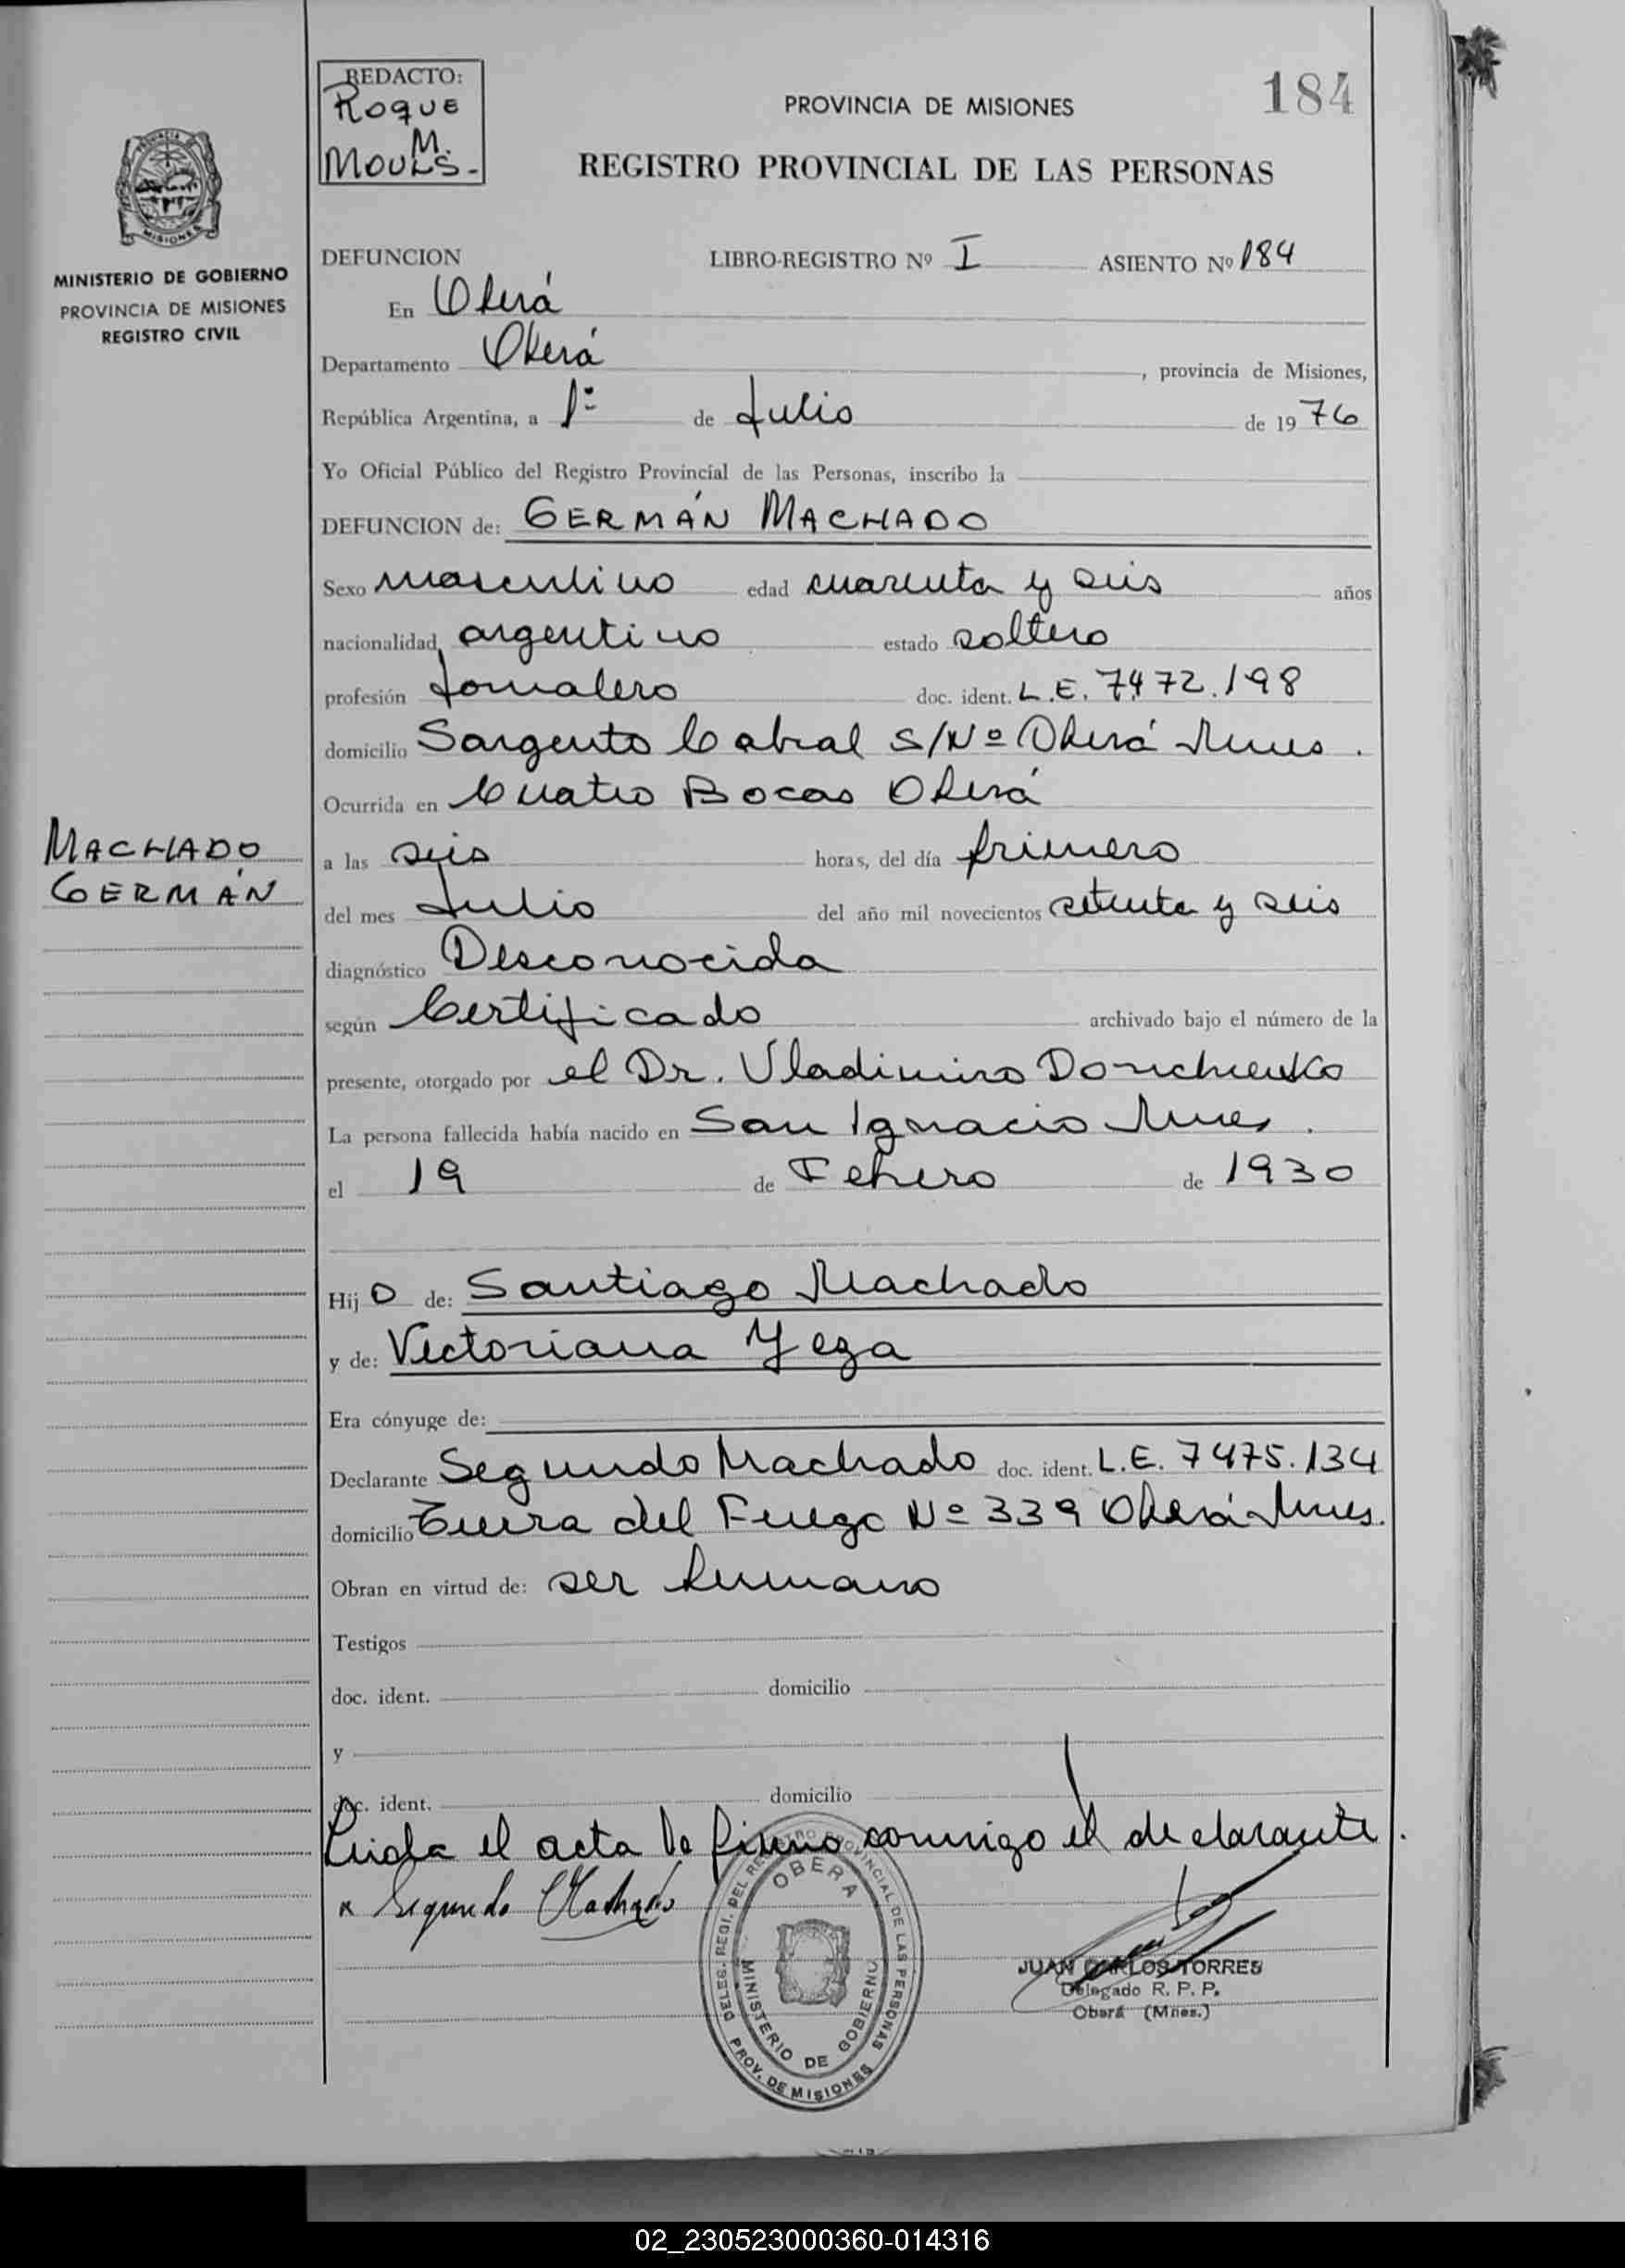 REDACTO:
ROQUE
M.
184
PROVINCIA DE MISIONES
REGISTRO PROVINCIAL DE LAS PERSONAS
PROVINCIA
MISIONES
MINISTERIO DE GOBIERNO
PROVINCIA DE MISIONES
REGISTRO CIVIL
DEFUNCION LIBRO-REGISTRO Nº I ASIENTO Nº 184
En Oberá
Departamento Oberá, provincia de Misiones,
República Argentina, a 1º de Julio de 1976
Yo Oficial Público del Registro Provincial de las Personas, inscribo la
DEFUNCION de: GERMÁN MACHADO
Sexo masculino edad cuarenta y seis años
nacionalidad argentino estado soltero
profesión Jornalero doc. ident. L.E. 7472.198
domicilio Sargento Cabral S/Nº Oberá Mnes.
Ocurrida en Cuatro Bocas Oberá
MACHADO
GERMÁN
a las seis horas, del día primero
del mes Julio del año mil novecientos setenta y seis
diagnóstico Desconocida
según Certificado archivado bajo el número de la
presente, otorgado por el Dr. Vladimiro Donchenko
La persona fallecida había nacido en San Ignacio Mnes.
el 19 de Febrero de 1930
Hijo de: Santiago Machado
y de: Victoriana Yeza
Era cónyuge de:
Declarante Segundo Machado doc. ident. L.E. 7475.134
domicilio Tierra del Fuego Nº 339 Oberá Mnes.
Obran en virtud de: ser humano
Testigos
doc. ident. domicilio
y
doc. ident. domicilio
Leida el acta la firma conmigo el declarante.
Segundo Machado
DELEG. REGI. DEL REGISTRO PROVINCIAL DE LAS PERSONAS
OBERA
MINISTERIO DE GOBIERNO
PROV. DE MISIONES
JUAN CARLOS TORRES
Delegado R. P. P.
Oberá (Mnes.)
02_230523000360-014316